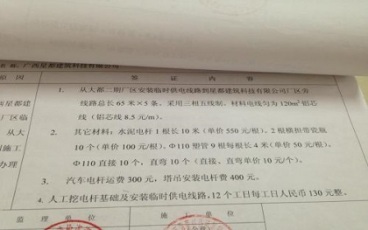 名称：广西星都建筑科技有限公司
原因
签证内容
1. 从大都二期厂区安装临时供电线路到星都建筑科技有限公司厂区旁
线路总长65米×5条，采用三相五线制，材料电线均为120m²铝芯
线（铝芯线8.5元/m）。
2. 其它材料：水泥电杆1根长10米（单价550元/根）、2根横担带瓷瓶
10个（单价100元/根）、Φ110塑管9根每根长4米（单价50元/根）、
Φ110直接10个，直弯10个（直接、直弯单价10元/个）。
3. 汽车电杆运费300元，塔吊安装电杆费400元。
4. 人工挖电杆基础及安装临时供电线路，12个工日每工日人民币130元整。
星都建
厂区临
从大
部施工
办理
监理单位
施工单位